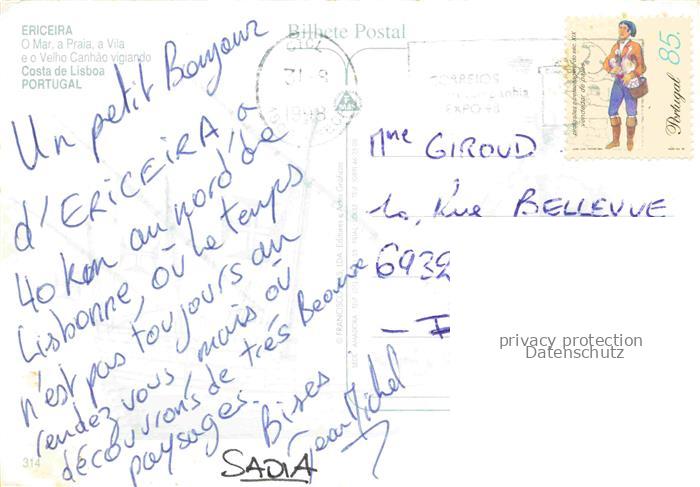 ERICEIRA
O Mar, a Praia, a Vila
e o Velho Canhão vigiando
Costa de Lisboa
PORTUGAL
Bilhete Postal
Un petit Bonjour
d'ERICEIRA, a
40 km au nord de
Lisbonne, où le temps
n'est pas toujours au
rendez vous, mais où
découvrons de très Beaux
paysages.
Bises
Jean Michel
SADIA
314
31-8
1998
CORREIOS
EXPO 98
85.
Portugal
Mme GIROUD
10, Rue BELLEVUE
6932
privacy protection
Datenschutz